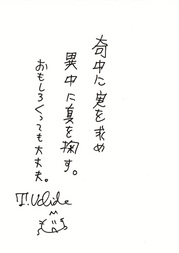 奇中に実を求め
異中に真を掬す。
おもしろくっても大丈夫。